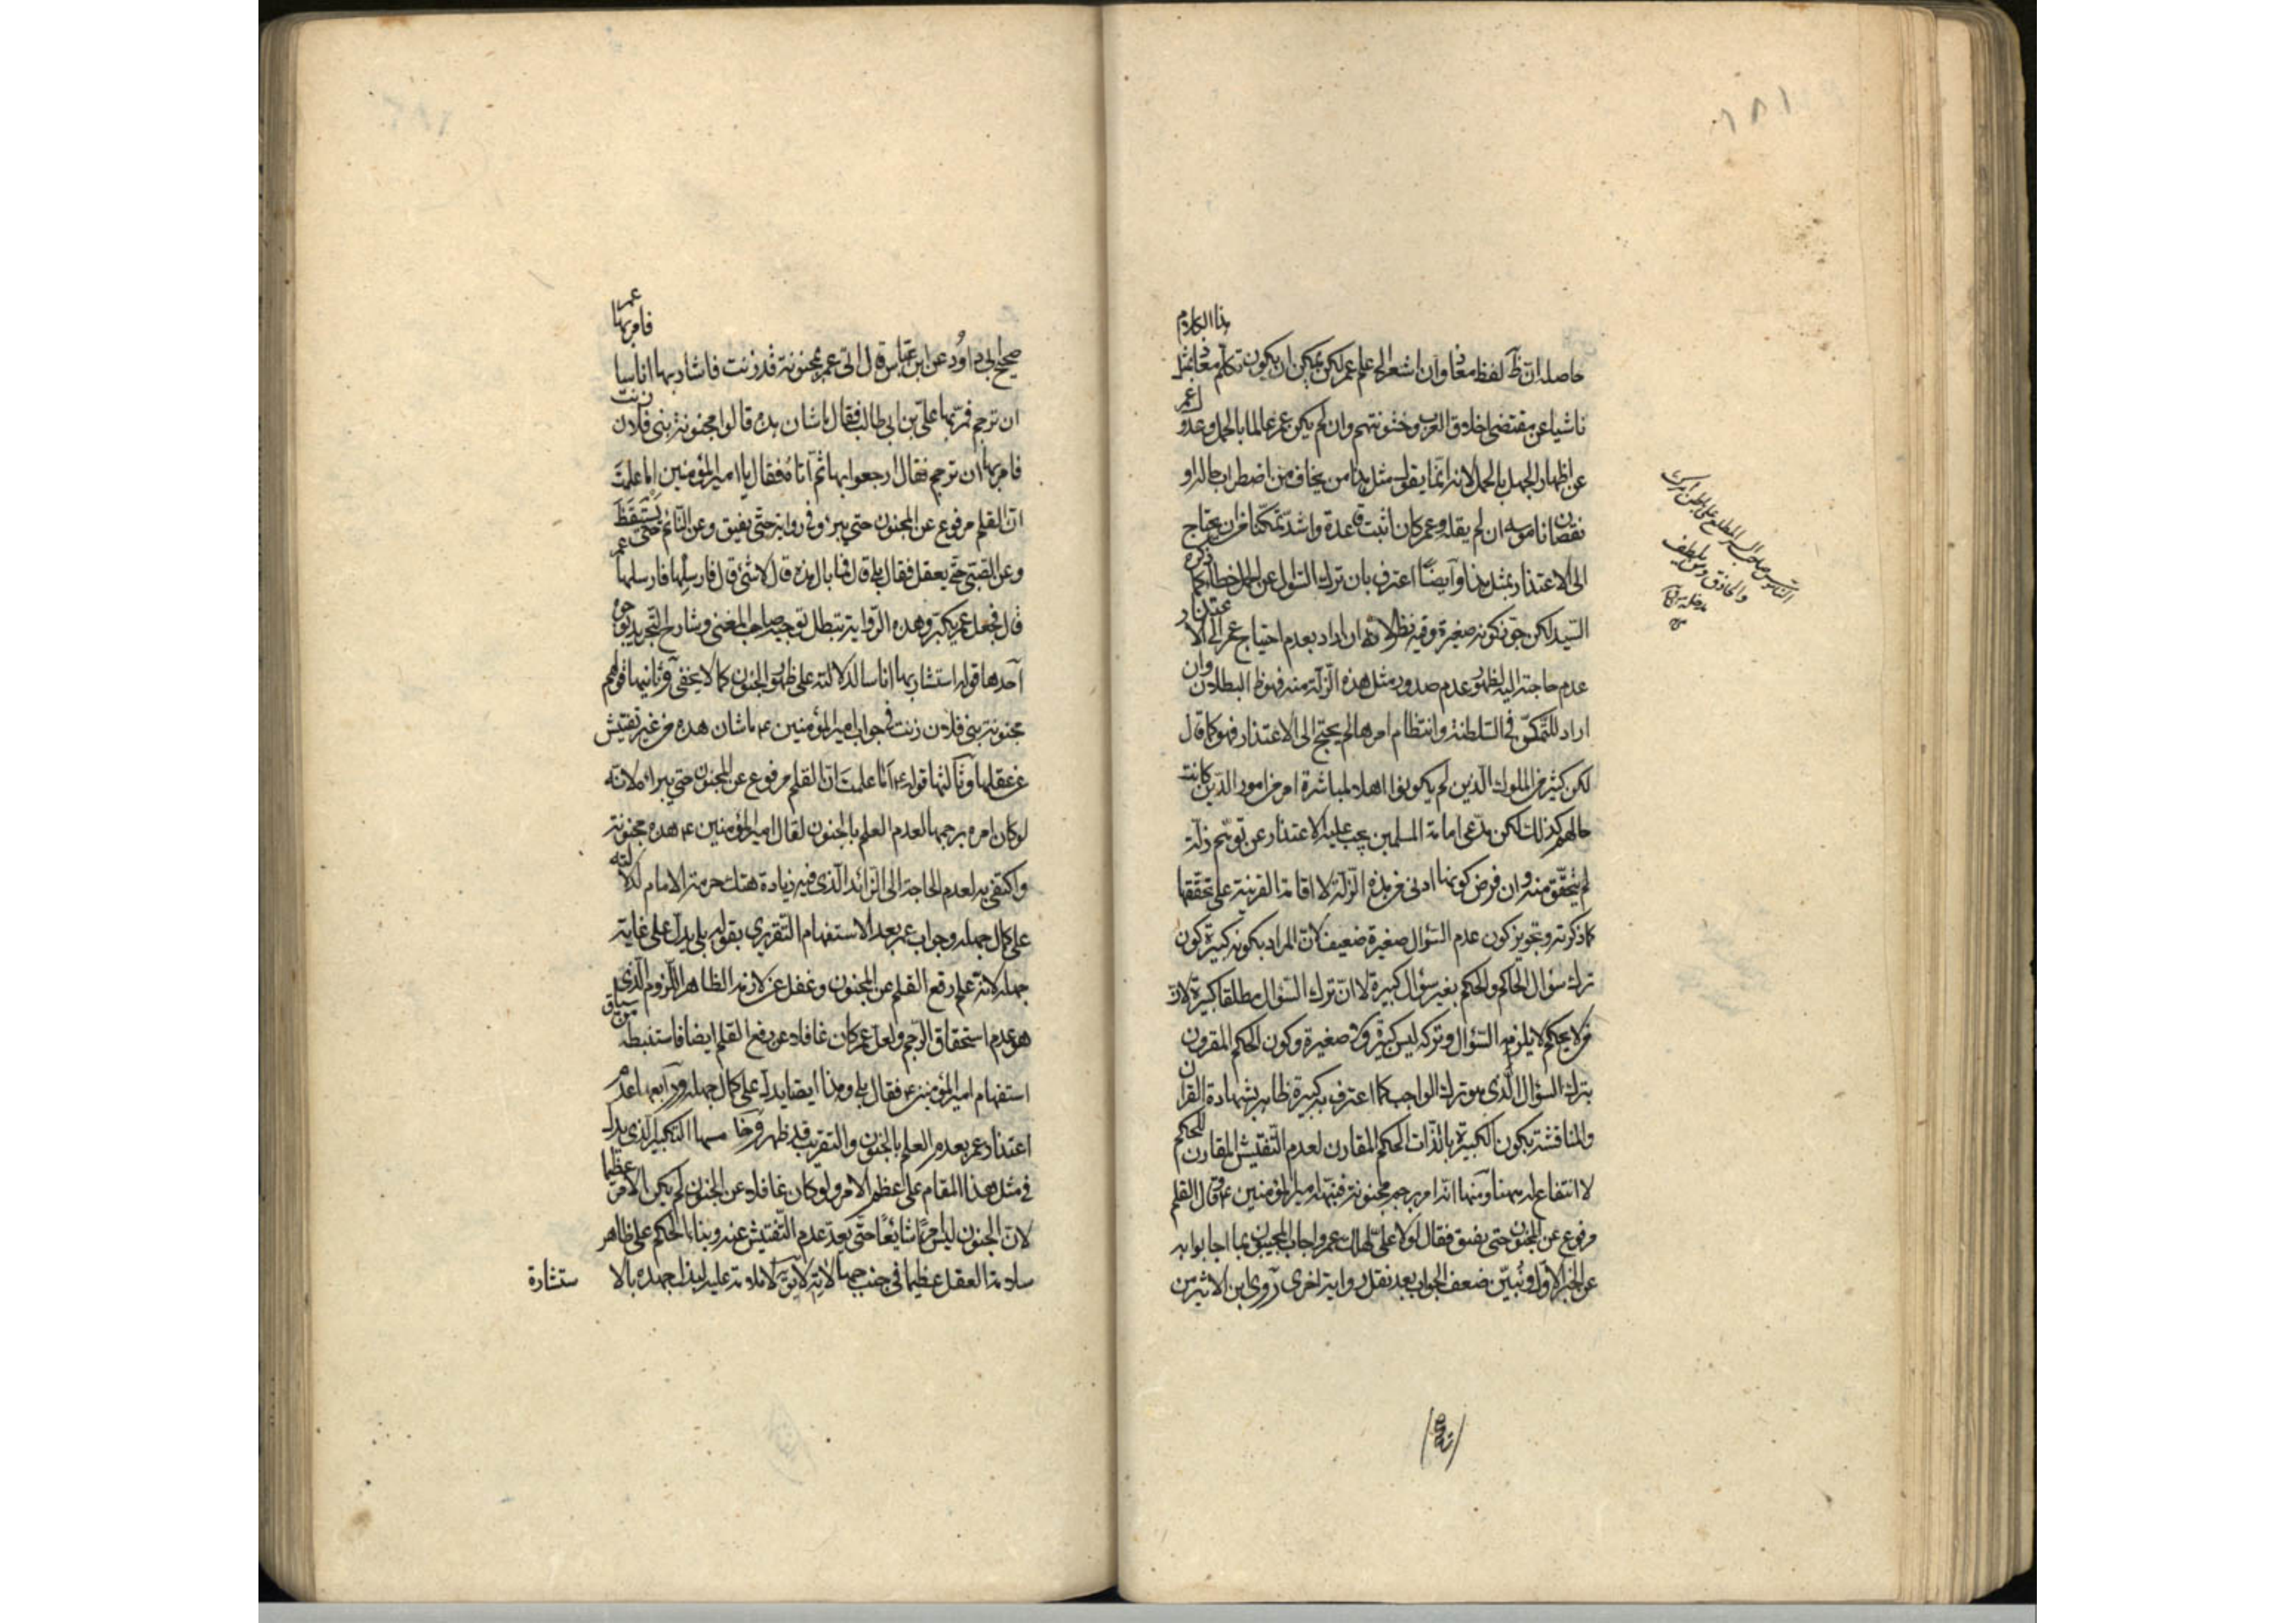 ١٨١
حاصله ان ظ لفظ معاذ وان اشعر الى علم عمر لكن يمكن ان يكون تكلم معاذ بمثل هذا الكلام
ناشيا عن مقتضى اخلاق العرب وخشونتهم وان لم يكن عمر عالما بالحمل وعدول عمر
عن اظهار الجهل بالحمل لانه انما يقول مثل هذا من يخاف من اضطراب حاله او
نقصان ناموسه ان لم يقله وعمر كان اثبت قاعدة واشد تمكنا من ان يحتاج
الى الاعتذار بمثل هذا وايضًا اعترف بان ترك السؤال عن الحمل خطأ كما ذكره
السيد لكن جوز كونه صغيرة وفيه نظر لانه ان اراد بعدم احتياج عمر الى الاعتذار
عدم حاجته اليه لظهور عدم صدور مثل هذه الزلة منه فهو ظ البطلان وان
اراد للتمكن في السلطنة وانتظام امرها لم يحتج الى الاعتذار فهو كما قال
لكن كثير من الملوك الذين لم يكونوا اهلا لمباشرة امر من امور الدين كانت
حالهم كذلك لكن مدعى امامة المسلمين يجب عليه الاعتذار عن توهم زلة
لم يتحقق منه وان فرض كونها ادنى من هذه الزلة لا اقامة القرينة على تحققها
كما ذكرته وتجويز كون عدم السؤال صغيرة ضعيف لان المراد بكونه كبيرة كون
ترك سؤال الحاكم والحكم بغير سؤال كبيرة لا ان ترك السؤال مطلقا كبيرة لان
من لا يحكم لا يلزمه السؤال وتركه ليس كبيرة ولا صغيرة وكون الحكم المقرون
بترك السؤال الذي هو ترك الواجب كما اعترف به كبيرة ظاهر بشهادة القران
والمناقشة بكون الكبيرة بالذات الحكم المقارن لعدم التفتيش المقارن للحكم
لا انتفاع له ههنا ومنها انه امر برجم مجنونة فنبهه امير المؤمنين ع وقال القلم
مرفوع عن المجنون حتى يفيق فقال لولا علي لهلك عمر واجاب المجيبون بما اجابوا به
عن الخبر الاول ونبين ضعف الجواب بعد نقل رواية اخرى روى ابن الاثير من
الناموس صاحب السر المطلع على باطن امرك
والحاذق ومن يلطف
مدخله
صحيح ابي داوُد عن ابن عباس قال اتى عمر بمجنونة قد زنت فاشار بها اناسا فامر بها عمر
ان ترجم فمر بها علي بن ابي طالب فقال ما شان هذه قالوا مجنونة بني فلان زنت
فامر بها ان ترجم فقال ارجعوا بها ثم اتاه فقال يا امير المؤمنين اما علمت
ان القلم مرفوع عن المجنون حتى يبرأ وفي رواية حتى يفيق وعن النائم حتى يستيقظ
وعن الصبي حتى يعقل فقال بلى قال فما بال هذه قال لا شئ قال فارسلها فارسلها عمر
قال فجعل عمر يكبر وهذه الرواية تبطل توجيه صاحب المغني وشارح التجريد بوجوه
احدها قوله استشار بها اناسا لدلالته على ظهور الجنون كما لا يخفى وثانيها قولهم
مجنونة بني فلان زنت في جواب امير المؤمنين ع ما شان هذه من غير تفتيش
عن عقلها وثالثها قوله ع اما علمت ان القلم مرفوع عن المجنون حتى يبرا لانه
لو كان امره برجمها لعدم العلم بالجنون لقال امير المؤمنين ع هذه مجنونة
واكتفى به لعدم الحاجة الى الزائد الذي فيه زيادة هتك حرمة الامام لدلالته
على كمال جهله وجواب عمر بعد الاستفهام التقريري بقوله بلى يدل على غاية
جهله لانه علم رفع القلم عن المجنون وغفل عن لازمه الظاهر اللزوم الذي
هو عدم استحقاق الرجم ولعل عمر كان غافلا عن رفع القلم ايضا فاستنبطه من سياق
استفهام امير المؤمنين ع فقال بلى وهذا ايضا يدل على كمال جهله ورابعها عدم
اعتذار عمر بعدم العلم بالجنون والتقريب قد ظهر وخامسها التكبير الذي يدل
في مثل هذا المقام على عظم الامر ولو كان غافلا عن الجنون لم يكن الامر عظيما
لان الجنون ليس امرًا شايعًا حتى يعد عدم التفتيش عنه وبناء الحكم على ظاهر
سلامة العقل عظيما في جنب جهالاته لانه لا ملامة عليه لهذا جهده بالا
ستشارة